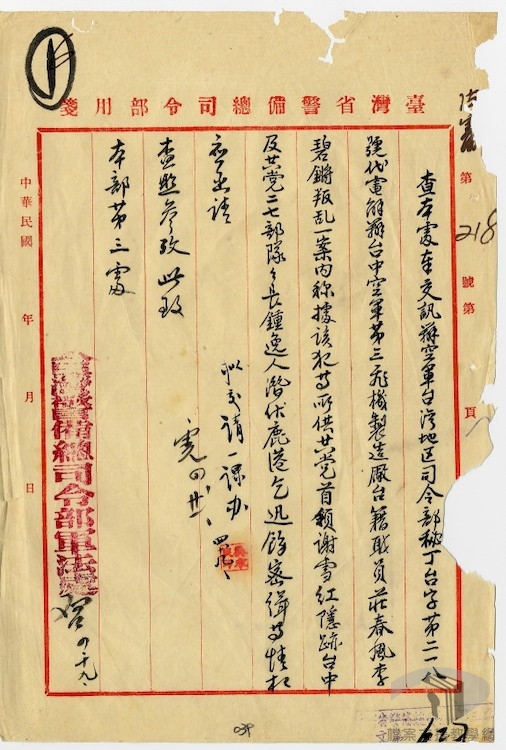 臺灣省警備總司令部用箋
第218號第 頁
查本處奉交訊辦空軍台灣地区司令部秘丁台字第二一八
號代電解辦台中空軍第三飛機製造廠台籍職員莊春風李
碧鏘叛乱一案內称據該犯等所供共党首領謝雪紅隱跡台中
及共党二七部隊々長鍾逸人潛伏鹿港乞迅飭密緝等情相
应函請
查照參攷此致
本部第三處
擬交請一課办
中華民國 年 月 日
備總司令部軍法處
034